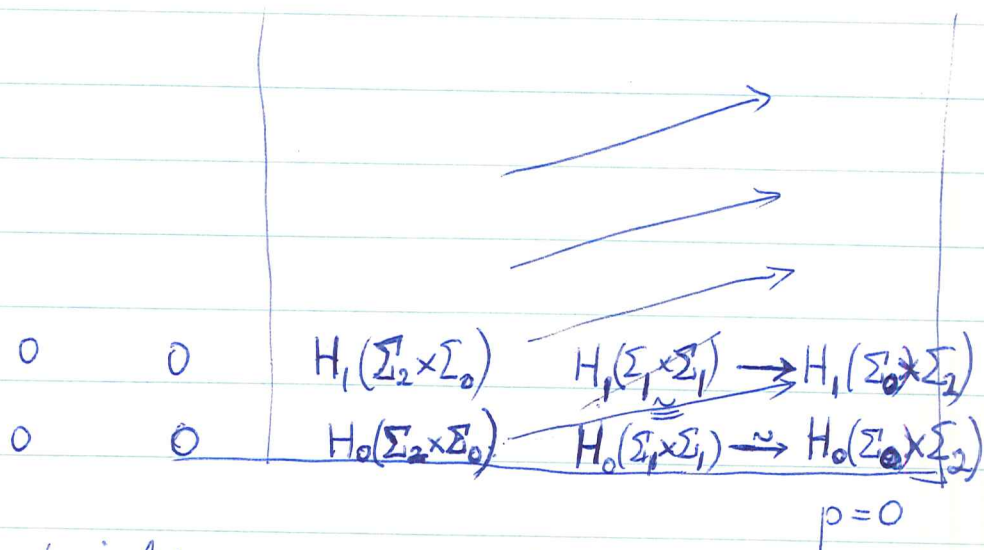 0 0 H₁(Σ₂×Σ₀) H₁(Σ₁×Σ₁) → H₁(Σ₀×Σ₂)
≃
0 0 H₀(Σ₂×Σ₀) H₀(Σ₁×Σ₁) ~→ H₀(Σ₀×Σ₂)
p=0